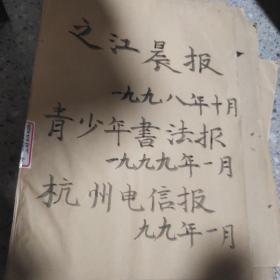 之江晨报
一九九八年十月
青少年書法报
一九九九年一月
杭州电信报
九九年一月